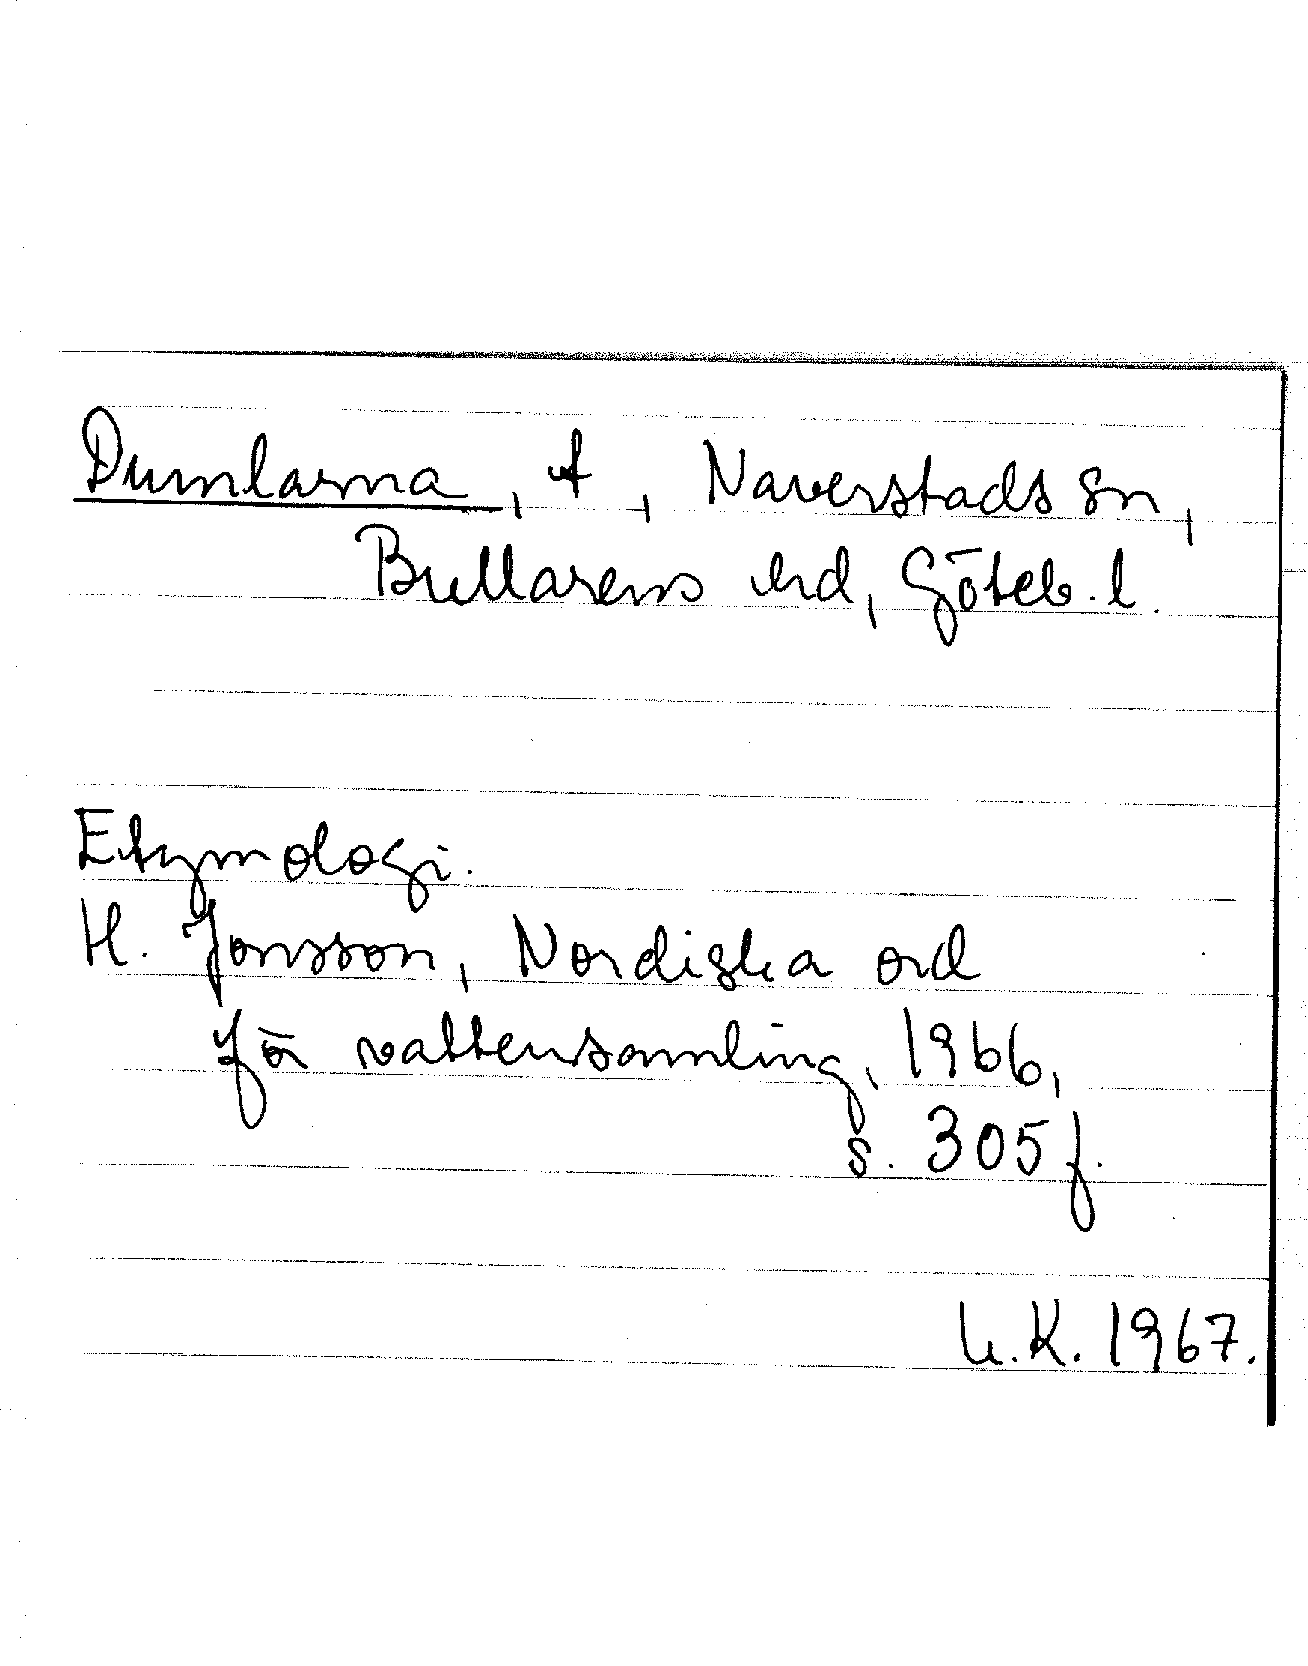 Dumlarna, t, Naverstads sn,
Bullarens hd, Göteb. l.
Etymologi.
H. Jonsson, Nordiska ord
för vattensamling, 1966,
s. 305 f.
U.K. 1967.